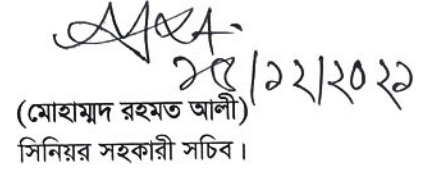 ১৫/১২/২০২১
(মোহাম্মদ রহমত আলী)
সিনিয়র সহকারী সচিব।